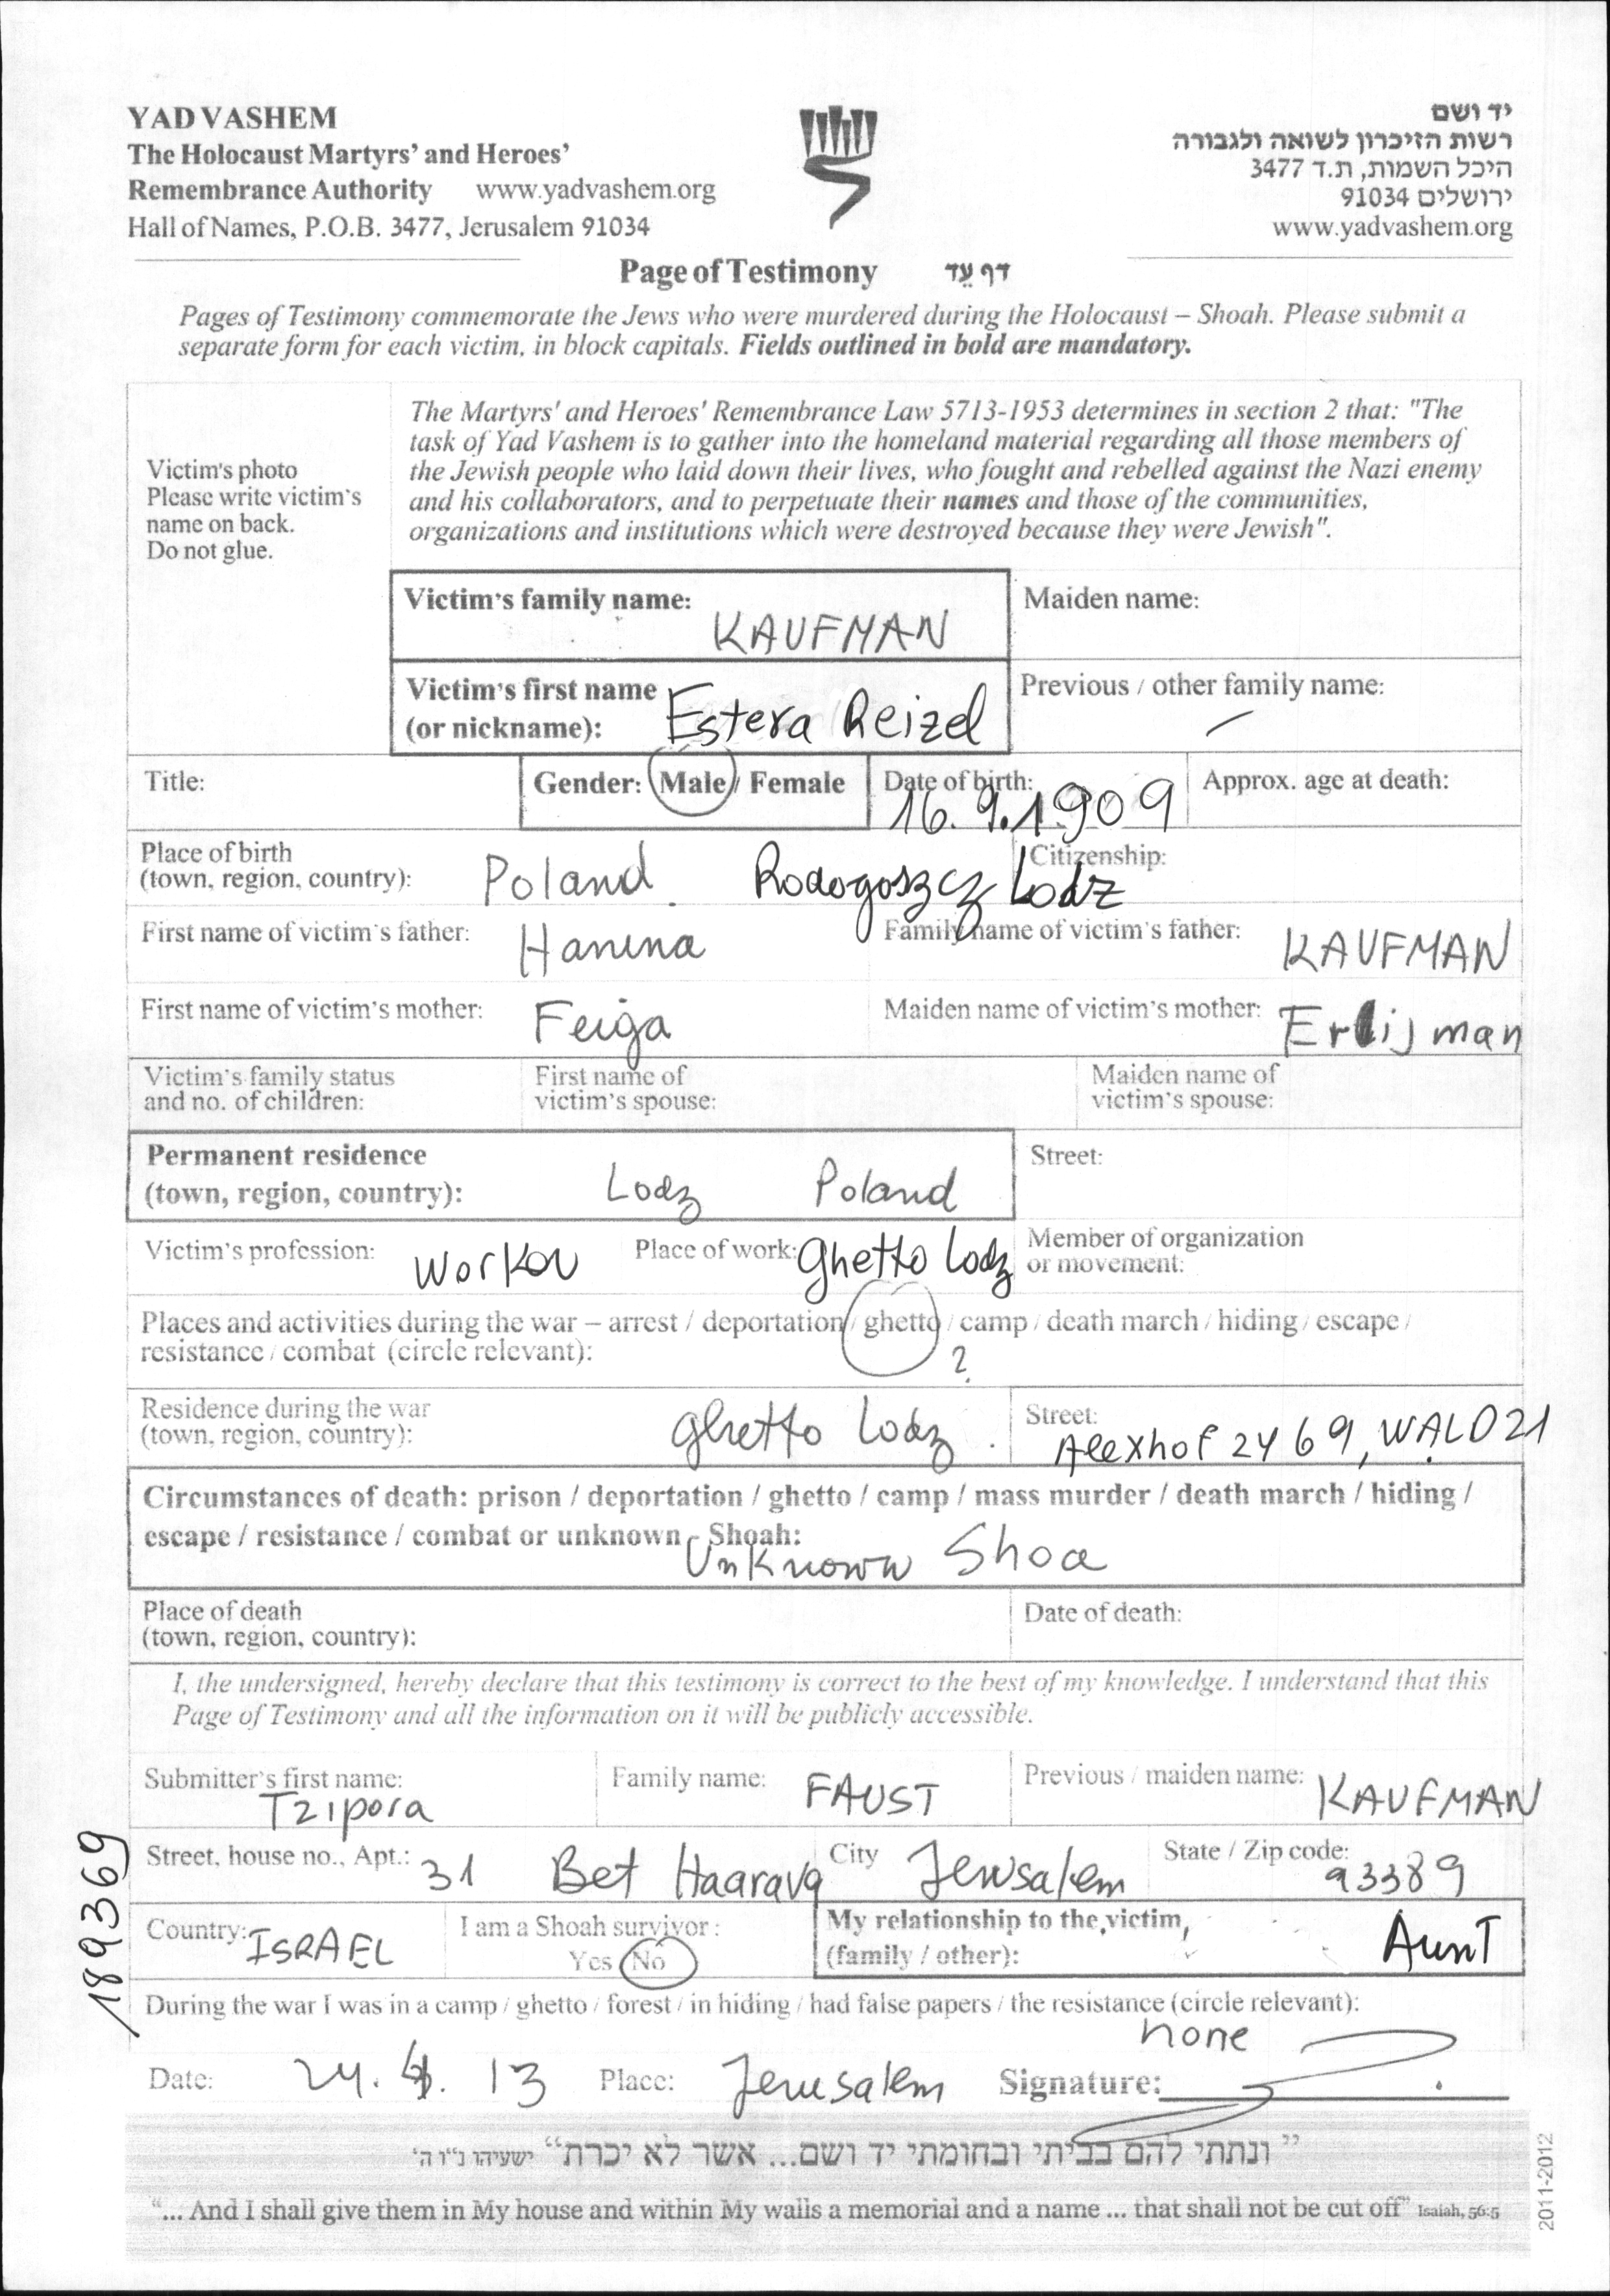 YAD VASHEM
The Holocaust Martyrs' and Heroes'
Remembrance Authority www.yadvashem.org
Hall of Names, P.O.B. 3477, Jerusalem 91034
יד ושם
רשות הזיכרון לשואה ולגבורה
היכל השמות, ת.ד 3477
ירושלים 91034
www.yadvashem.org
Page of Testimony דף עֵד
Pages of Testimony commemorate the Jews who were murdered during the Holocaust – Shoah. Please submit a
separate form for each victim, in block capitals. Fields outlined in bold are mandatory.
Victim's photo
Please write victim's
name on back.
Do not glue.
The Martyrs' and Heroes' Remembrance Law 5713-1953 determines in section 2 that: "The
task of Yad Vashem is to gather into the homeland material regarding all those members of
the Jewish people who laid down their lives, who fought and rebelled against the Nazi enemy
and his collaborators, and to perpetuate their names and those of the communities,
organizations and institutions which were destroyed because they were Jewish".
Victim's family name: KAUFMAN
Maiden name:
Victim's first name
(or nickname): Estera Reizel
Previous / other family name: –
Title: Gender: Male / Female Date of birth: 16.9.1909 Approx. age at death:
Place of birth
(town, region, country): Poland Rodogoszcz Lodz Citizenship:
First name of victim's father: Hanina Family name of victim's father: KAUFMAN
First name of victim's mother: Feiga Maiden name of victim's mother:
Victim's family status
and no. of children:
First name of
victim's spouse:
Maiden name of
victim's spouse:
Permanent residence
(town, region, country): Lodz Poland
Street:
Victim's profession: Worker Place of work: Ghetto Lodz Member of organization
or movement:
Places and activities during the war – arrest / deportation / ghetto / camp / death march / hiding / escape /
resistance / combat (circle relevant): ?
Residence during the war
(town, region, country): ghetto Lodz
Street: Alexhof 24 69, WALD 21
Circumstances of death: prison / deportation / ghetto / camp / mass murder / death march / hiding /
escape / resistance / combat or unknown - Shoah:
Unknown Shoa
Place of death
(town, region, country):
Date of death:
I, the undersigned, hereby declare that this testimony is correct to the best of my knowledge. I understand that this
Page of Testimony and all the information on it will be publicly accessible.
Submitter's first name: Tzipora Family name: FAUST Previous / maiden name: KAUFMAN
Street, house no., Apt.: 31 Bet Haarava City Jerusalem State / Zip code: 93389
Country: ISRAEL I am a Shoah survivor :
Yes No
My relationship to the victim,
(family / other): Aunt
During the war I was in a camp / ghetto / forest / in hiding / had false papers / the resistance (circle relevant):
none
Date: 24. 4. 13 Place: Jerusalem Signature:
189369
" ונתתי להם בביתי ובחומתי יד ושם... אשר לא יכרת" ישעיהו נ"ו ה'
"... And I shall give them in My house and within My walls a memorial and a name ... that shall not be cut off" Isaiah, 56:5
2011-2012